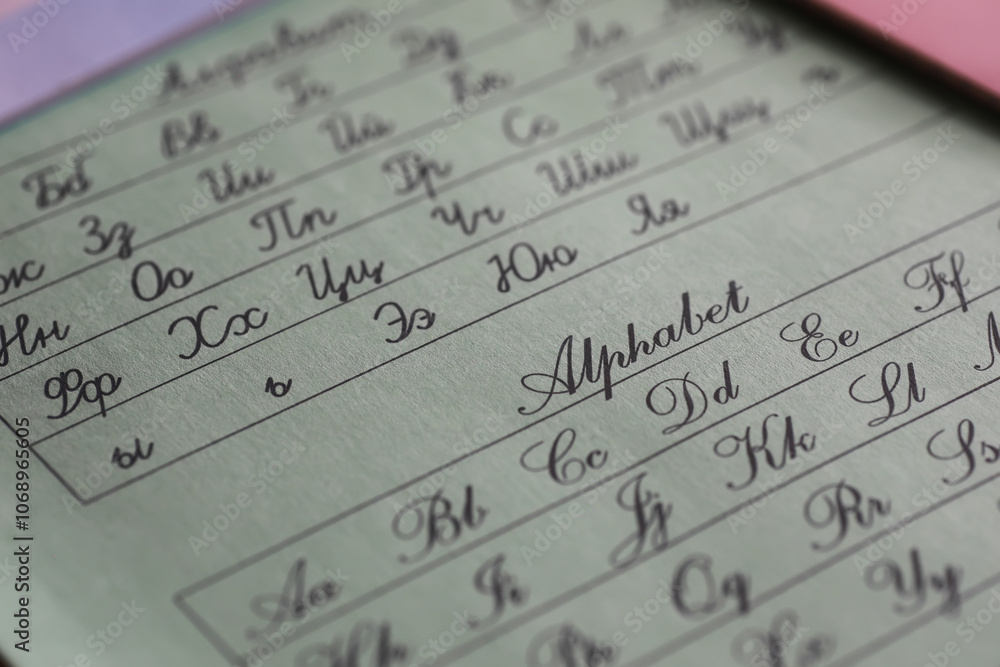 Алфавит
Бб Вв Гг Дд
жж Зз Ии Йй Кк Лл
Нн Оо Пп Рр Сс Тт Уу
Фф Хх Цц Чч Шш Щщ ъ
ы ь Ээ Юю Яя
Alphabet
Aa Bb Cc Dd Ee Ff
Hh Ii Jj Kk Ll M
Pp Qq Rr Ss
Xx Yy
Adobe Stock | #1068965605